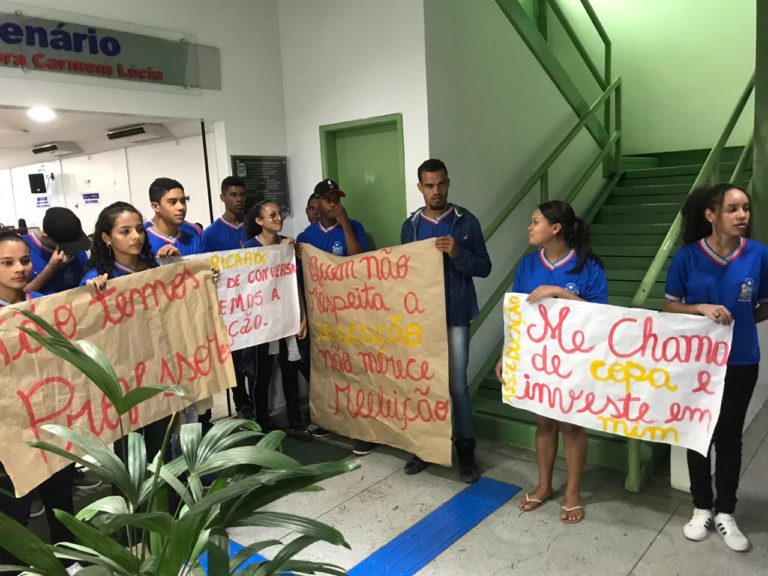 enário
ora Carmem Lúcia
Não temos
Professor
RICARDO
DE CONVERSA
EMOS A
ÇÃO.
Quem não
respeita a
educação
não merece
Reeleição
ASS: EDUCAÇÃO
Me Chama
de copa e
investe em
mim